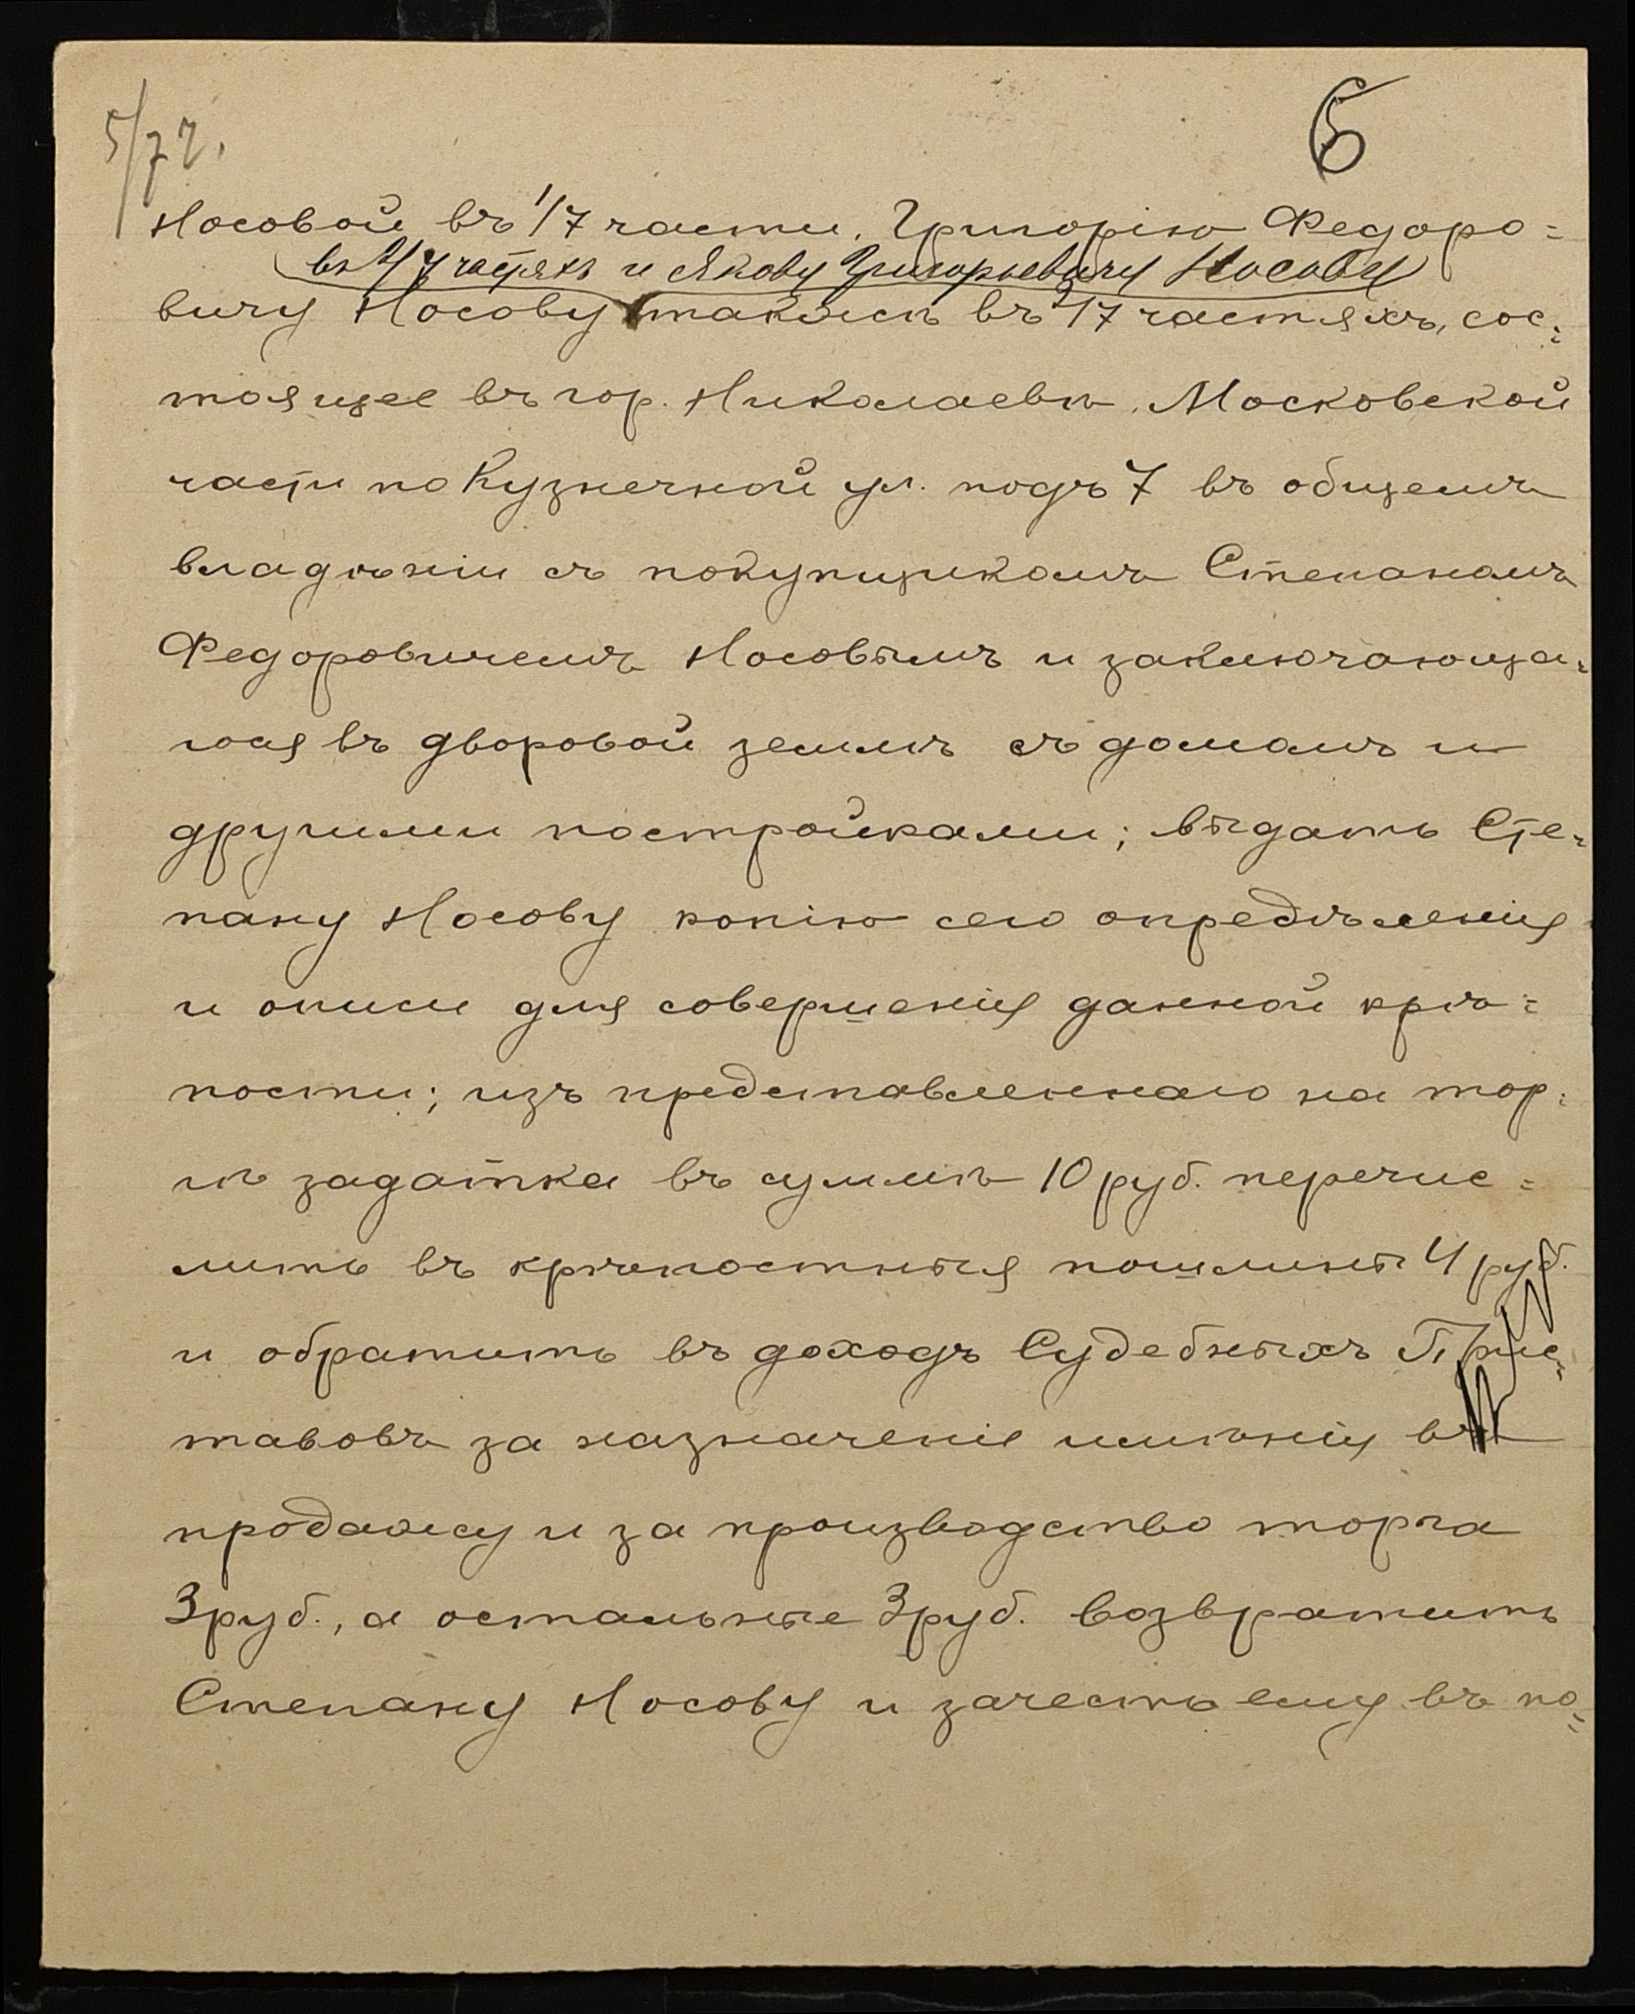 5/72.
6
Носовой въ 1/7 части, Григорію Федоро=
въ 2/7 частяхъ и Якову Григорьевичу Носову
вичу Носову также въ 2/7 частяхъ, сос=
тоящее въ гор. Николаевѣ, Московской
части по Кузнечной ул. подъ 7 въ общемъ
владѣніи съ покупщикомъ Степаномъ
Федоровичемъ Носовымъ и заключающа=
гося въ дворовой землѣ съ домомъ и
другими постройками; выдать Сте=
пану Носову копію сего опредѣленія
и описи для совершенія данной крѣ=
пости; изъ представленнаго на тор=
гѣ задатка въ суммѣ 10 руб. перечис=
лить въ крѣпостныя пошлины 4 руб.
и обратить въ доходъ Судебныхъ Прис=
тавовъ за назначеніе имѣнія въ
продажу и за производство торга
3 руб., а остальные 3 руб. возвратить
Степану Носову и зачесть ему въ по=